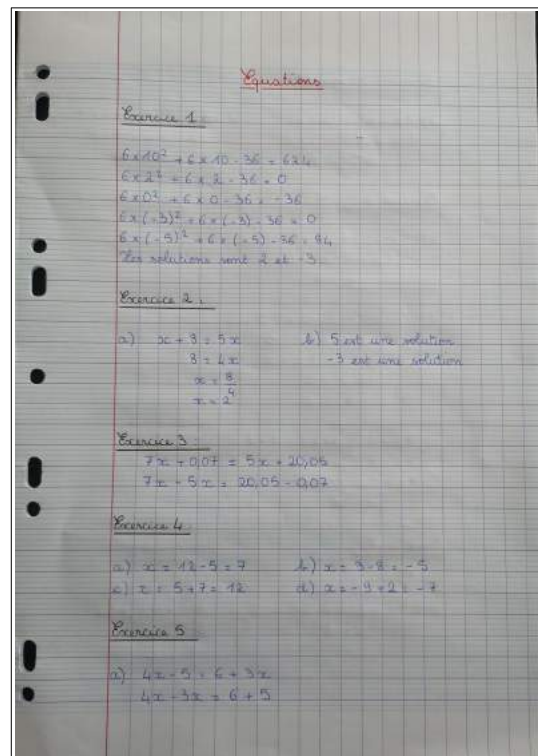 Equations
Exercice 1
6×10² + 6×10 - 36 = 624
6×2² + 6×2 - 36 = 0
6×0² + 6×0 - 36 = -36
6×(-3)² + 6×(-3) - 36 = 0
6×(-5)² + 6×(-5) - 36 = 84
Les solutions sont 2 et -3
Exercice 2
a) x + 8 = 5x b) 5 est une solution
8 = 4x -3 est une solution
x = 8/4
x = 2
Exercice 3
7x + 0,07 = 5x + 20,05
7x - 5x = 20,05 - 0,07
Exercice 4
a) x = 12 - 5 = 7 b) x = 3 - 8 = -5
c) x = 5 + 7 = 12 d) x = -9 + 2 = -7
Exercice 5
a) 4x - 5 = 6 + 3x
4x - 3x = 6 + 5